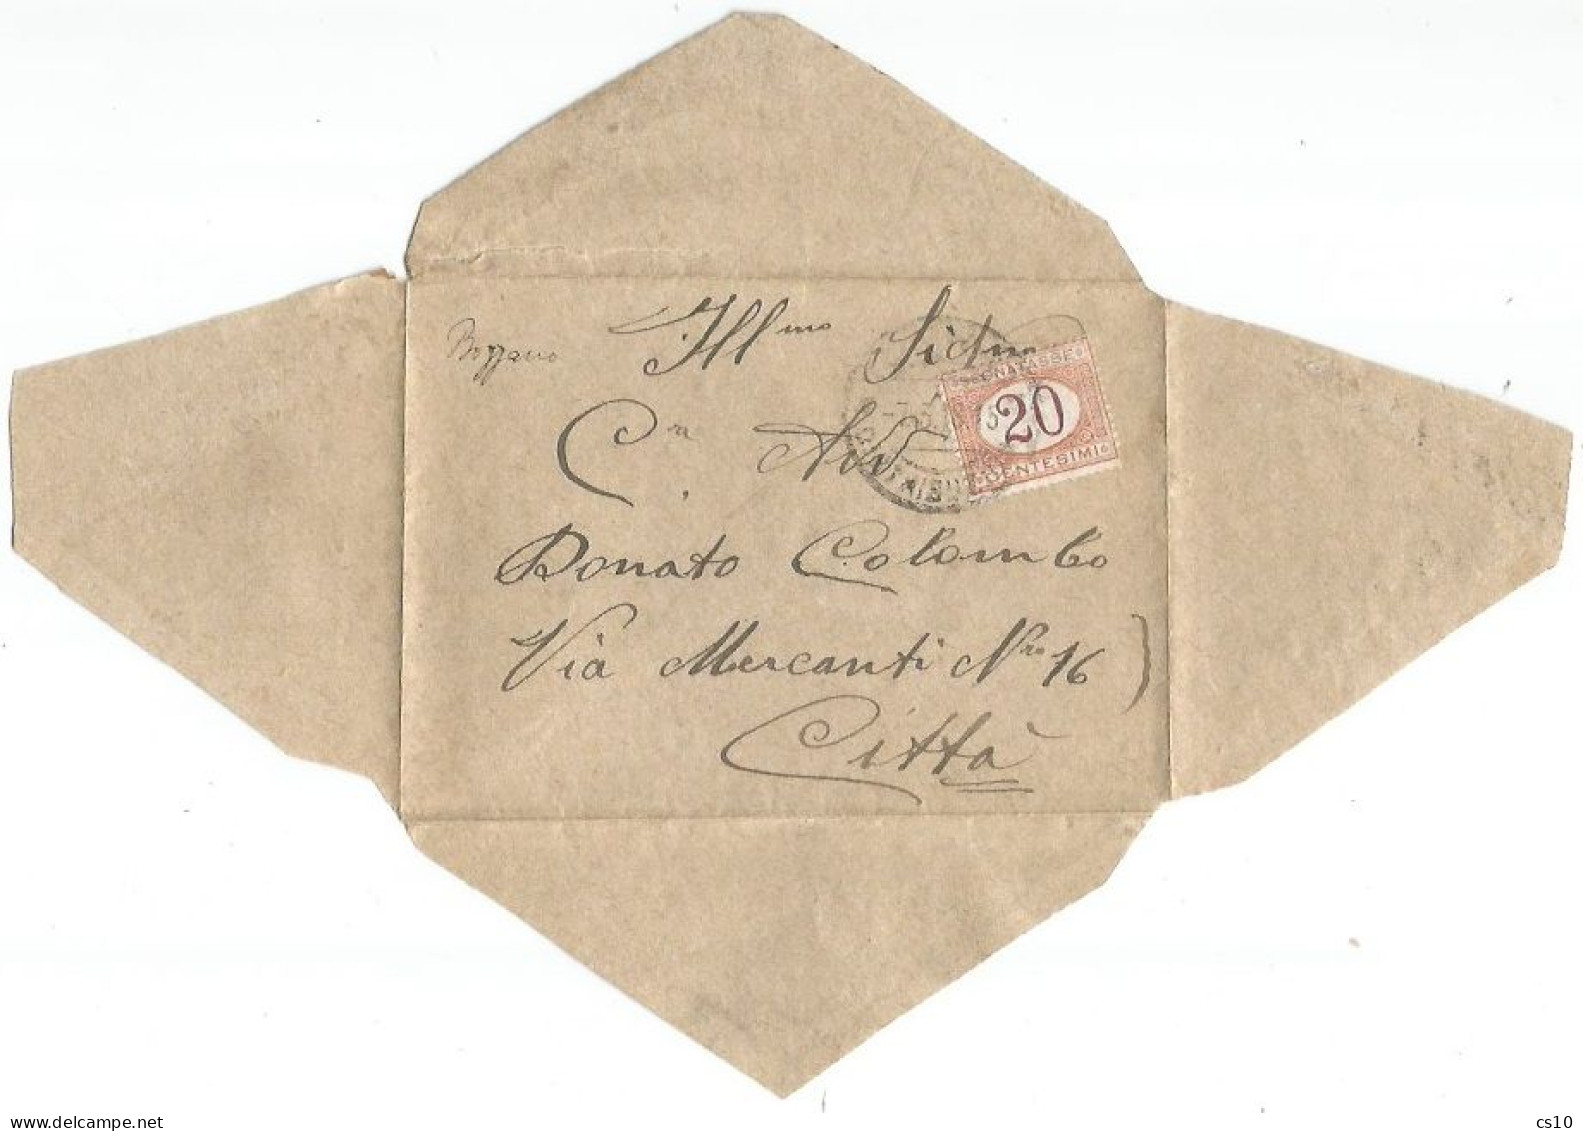 Ill.mo Sig.
Bozzano
SEGNATASSE
20
CENTESIMI
C. Avv.
Donato Colombo
Via Mercanti Nro 16
Città
delcampe.net
cs10